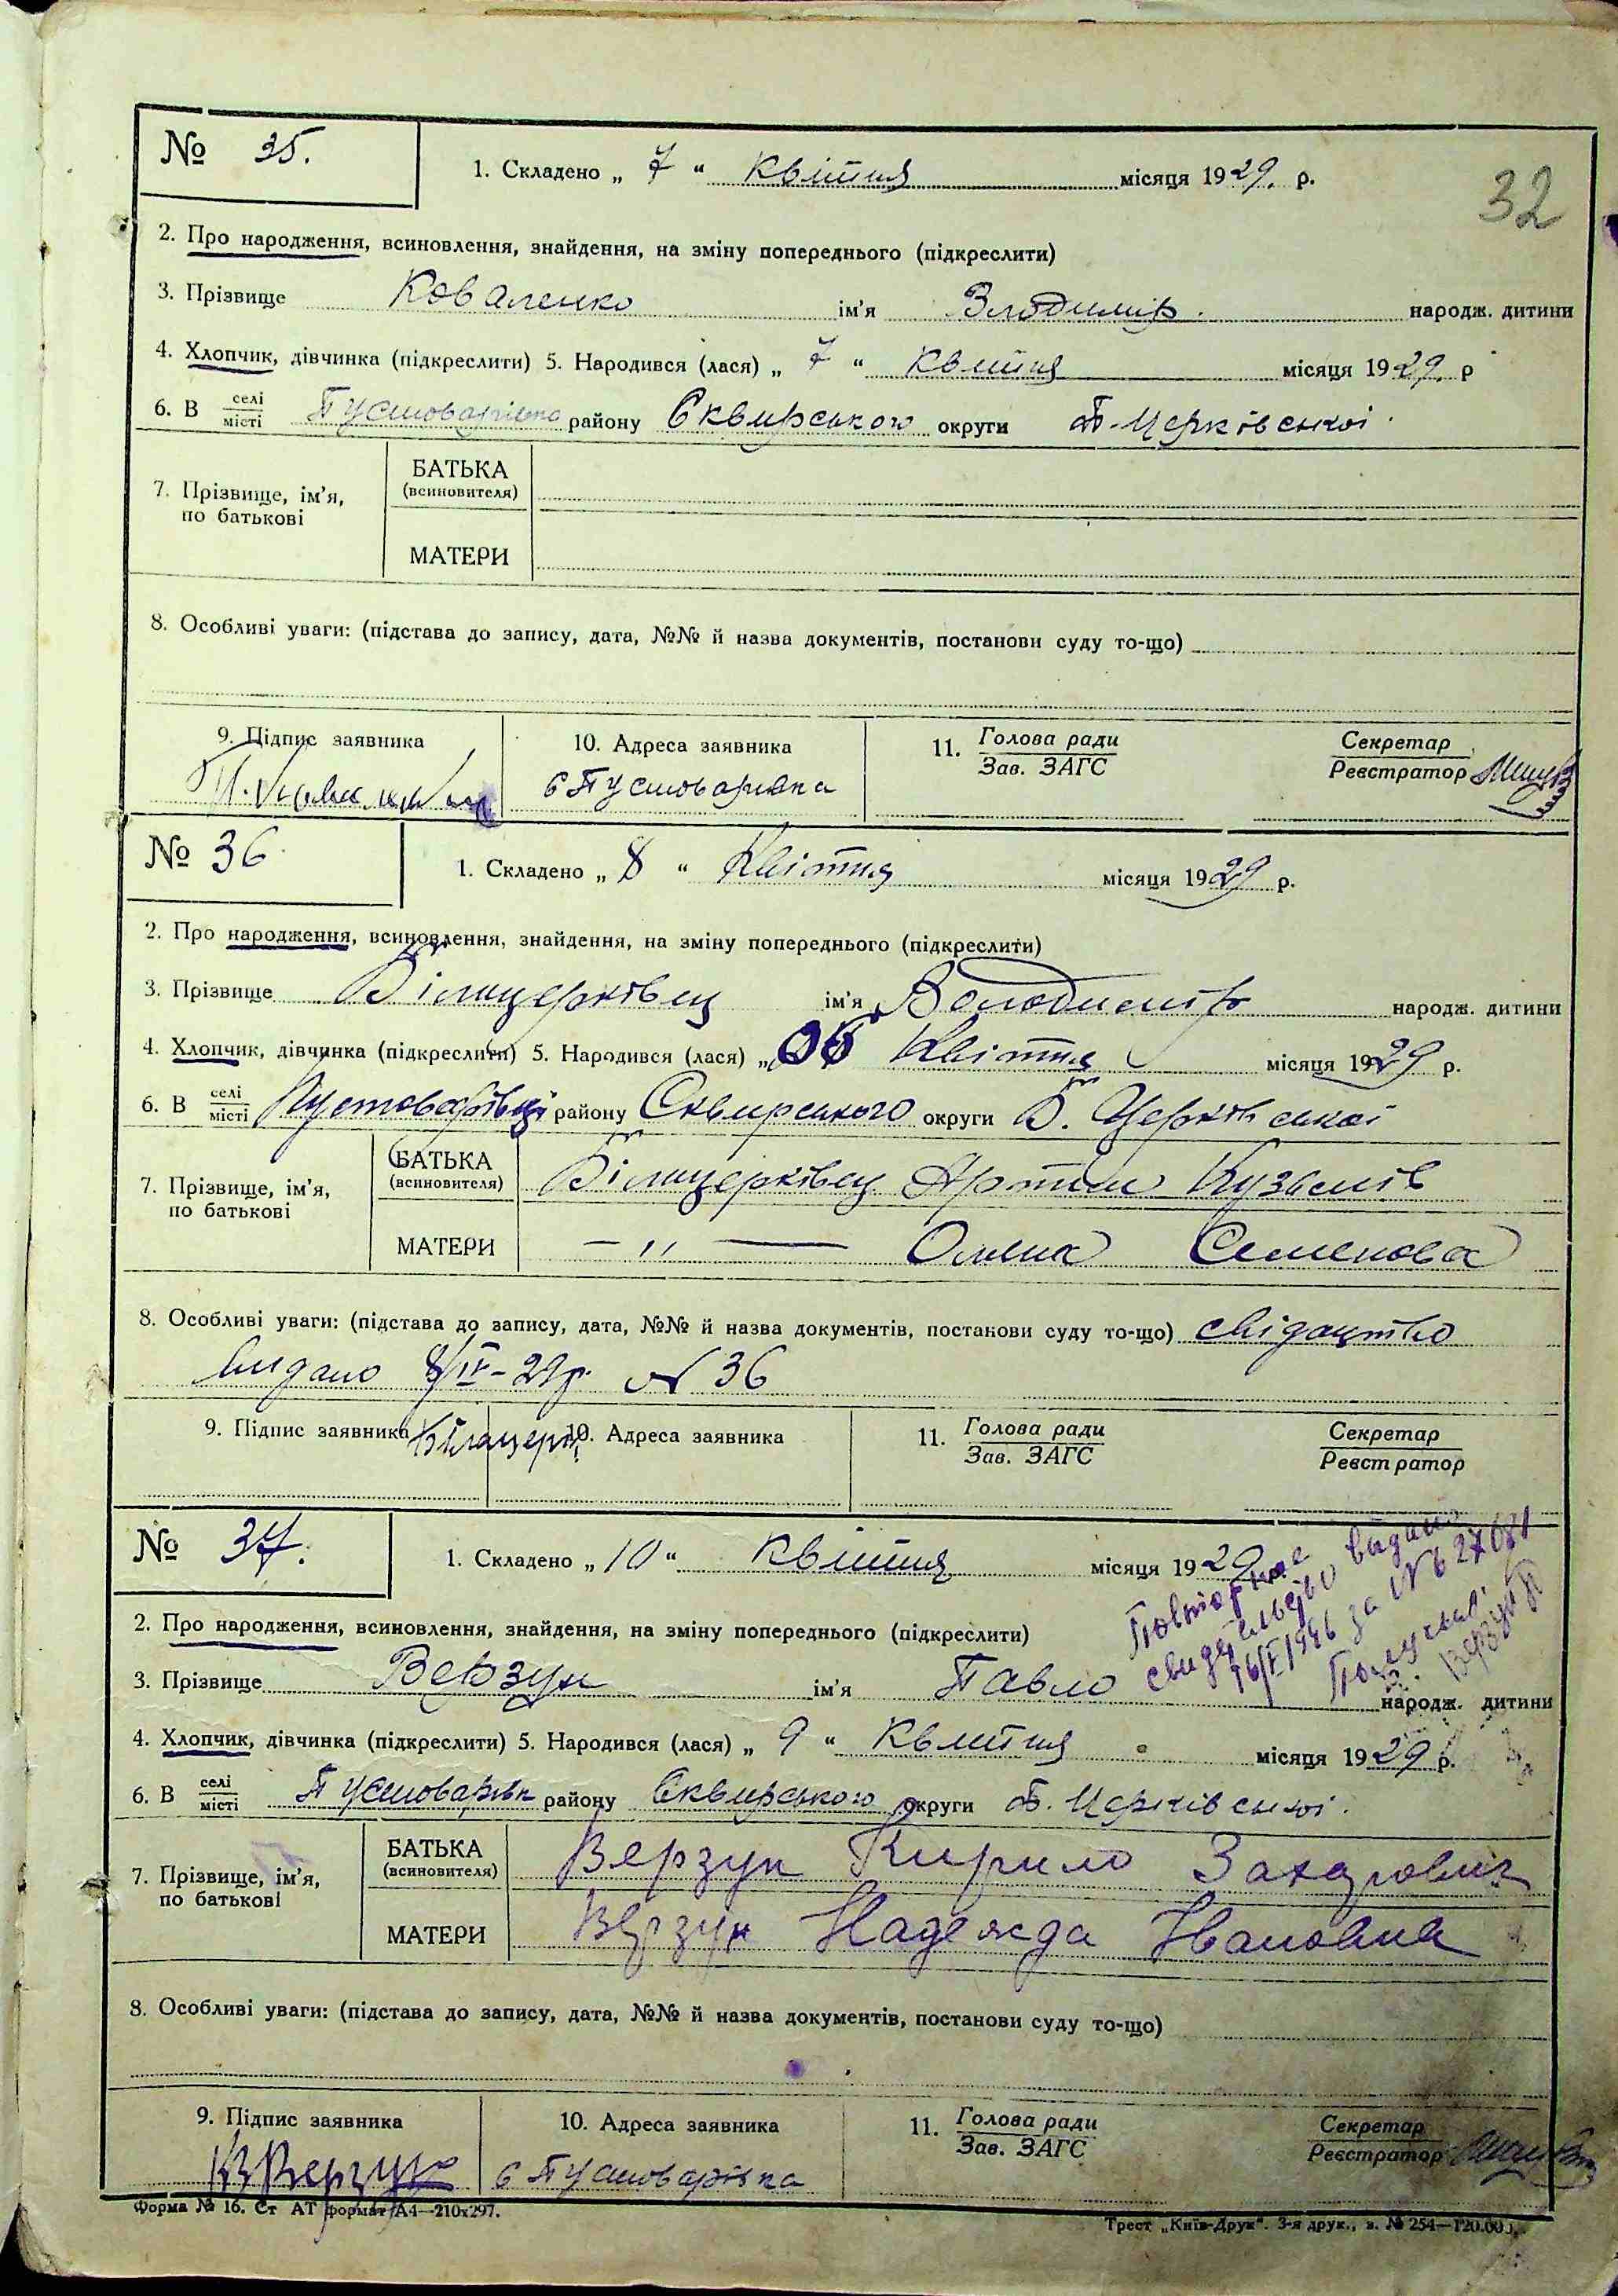 32
№ 35.
1. Складено „ 7 “ Квітня місяця 1929. р.
2. Про народження, всиновлення, знайдення, на зміну попереднього (підкреслити)
3. Прізвище Коваленко ім’я Влодимір. народж. дитини
4. Хлопчик, дівчинка (підкреслити) 5. Народився (лася) „ 7 “ Квітня місяця 1929. р
6. В селі місті Пустоварівка району Сквирського округи Б-Церківської.
7. Прізвище, ім’я, по батькові
БАТЬКА (всиновителя)
МАТЕРИ
8. Особливі уваги: (підстава до запису, дата, №№ й назва документів, постанови суду то-що)
9. Підпис заявника 10. Адреса заявника 11. Голова ради Зав. ЗАГС Секретар Реєстратор
с Пустоварівка
№ 36
1. Складено „ 8 “ Квітня місяця 1929 р.
2. Про народження, всиновлення, знайдення, на зміну попереднього (підкреслити)
3. Прізвище Білицерківец ім’я Володимір народж. дитини
4. Хлопчик, дівчинка (підкреслити) 5. Народився (лася) „ Квітня місяця 1929 р.
6. В селі місті Пустоварівці району Сквирського округи Б. Церківської
7. Прізвище, ім’я, по батькові
БАТЬКА (всиновителя) Білицерківец Артем Кузьмів
МАТЕРИ — „ — Олена Семенова
8. Особливі уваги: (підстава до запису, дата, №№ й назва документів, постанови суду то-що) свідоцтво
видано 8/IV-29р. № 36
9. Підпис заявника 10. Адреса заявника 11. Голова ради Зав. ЗАГС Секретар Реєстратор
№ 37.
1. Складено „ 10 “ Квітня місяця 1929
Повторное
свидетельство выдано
16/V 1946 за № 627081
Получил
Верзун
2. Про народження, всиновлення, знайдення, на зміну попереднього (підкреслити)
3. Прізвище Верзун ім’я Павло народж. дитини
4. Хлопчик, дівчинка (підкреслити) 5. Народився (лася) „ 9 “ Квітня місяця 1929 р.
6. В селі місті Пустоварівк району Сквирського округи Б. Церківської.
7. Прізвище, ім’я, по батькові
БАТЬКА (всиновителя) Верзун Кирило Захарович
МАТЕРИ Верзун Надежда Ивановна
8. Особливі уваги: (підстава до запису, дата, №№ й назва документів, постанови суду то-що)
9. Підпис заявника 10. Адреса заявника 11. Голова ради Зав. ЗАГС Секретар Реєстратор
Верзун с Пустоварівка
Форма № 16. Ст АТ формат А4—210x297.
Трест „Київ-Друк“. 3-я друк., з. № 254—120.00